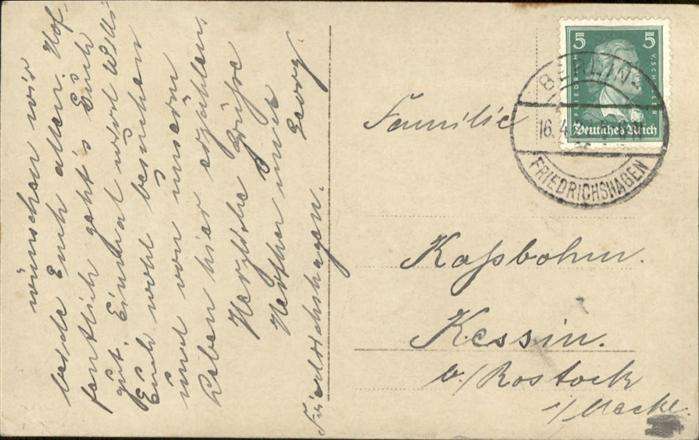 wünschen wir
beide Euch allen. Hof-
fentlich geht's Euch
gut. Einmal wird Willi
Euch wohl besuchen
und von unserm
Leben hier erzählen
Herzliche Grüße
und
Georg
Friedrichshagen.
5 5
Deutsches Reich
BERLIN
16.4.
FRIEDRICHSHAGEN
Familie
Kaßbohm.
Kessin.
b/Rostock
i/Meckl.